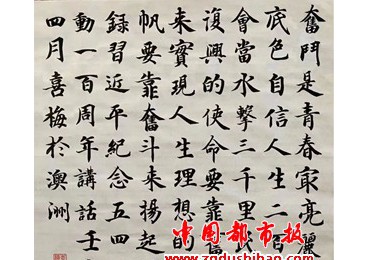 奮鬥是青春㝡亮麗
底色自信人生二百
會當水擊三千里民
復興的使命要靠奮
來實現人生理想的
帆要靠奮斗來揚起
録習近平紀念五四
動一百周年講話壬
四月喜梅於澳洲
中国都市报
www.zgdushibao.com